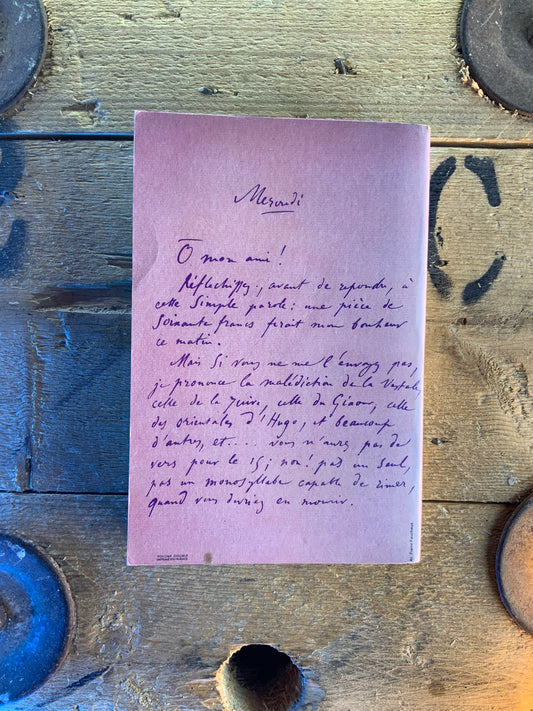 Mercredi
O mon ami!
Réflechissez, avant de repondre, à
cette simple parole: une pièce de
Soixante francs ferait mon bonheur
ce matin.
Mais si vous ne me l'envoyez pas,
je prononce la malédiction de la Vestale,
celle de la Juive, celle du Giaour, celle
des orientales d'Hugo, et beaucoup
d'autres, et.... vous n'aurez pas de
vers pour le 15; non! pas un seul,
pas un monosyllabe capable de rimer,
quand vous devriez en mourir.
VOLUME DOUBLE
At. Pierre Faucheux